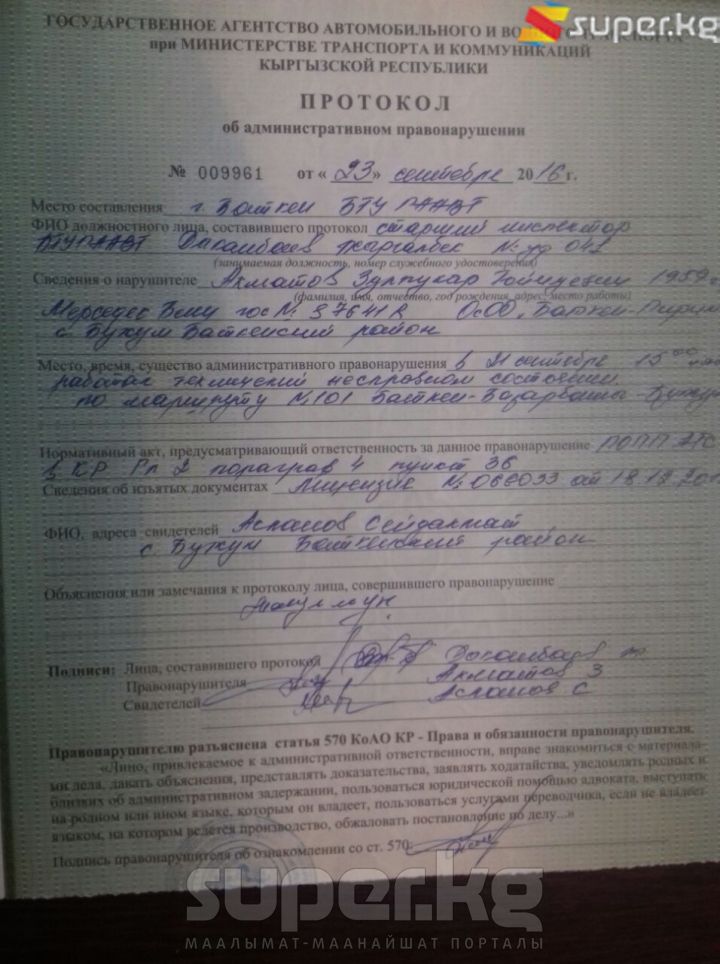 super.kg
ГОСУДАРСТВЕННОЕ АГЕНТСТВО АВТОМОБИЛЬНОГО И
при МИНИСТЕРСТВЕ ТРАНСПОРТА И КОММУНИКАЦИЙ
КЫРГЫЗСКОЙ РЕСПУБЛИКИ
ПРОТОКОЛ
об административном правонарушении
№ 009961 от «23» сентябре 2016 г.
Место составления г. Баткен БТУ
ФИО должностного лица, составившего протокол старший инспектор
Жаргалбек № 041
(занимаемая должность, номер служебного удостоверения)
Сведения о нарушителе Ахматов 1959
(фамилия, имя, отчество, год рождения, адрес, место работы)
Мерседес Бенц гос № ОсОО Баткен
с. Бужум Баткенский район
Место, время, существо административного правонарушения в 21 сентябре 15 00
работал технический неспровном состоянии
по маршруту №101 Баткен-Базарбашы-Бужум
Нормативный акт, предусматривающий ответственность за данное правонарушение
в КР Гл 2 пораграф 4 пункт 36
Сведения об изъятых документах Лицензия № 066033 от 18.12.
ФИО, адреса свидетелей Аспанов Сейдакмат
с. Бужум Баткенский район
Объяснения или замечания к протоколу лица, совершившего правонарушение
Подписи: Лица, составившего протокол
Правонарушителя Ахматов З
Свидетелей Аспанов С
Правонарушителю разъяснена статья 570 КоАО КР - Права и обязанности правонарушителя.
«Лицо, привлекаемое к административной ответственности, вправе знакомиться с материала-
ми дела, давать объяснения, представлять доказательства, заявлять ходатайства, уведомлять родных и
близких об административном задержании, пользоваться юридической помощью адвоката, выступать
на родном или ином языке, которым он владеет, пользоваться услугами переводчика, если не владеет
языком, на котором ведется производство, обжаловать постановление по делу...»
Подпись правонарушителя об ознакомлении со ст. 570:
super.kg
МААЛЫМАТ-МААНАЙШАТ ПОРТАЛЫ